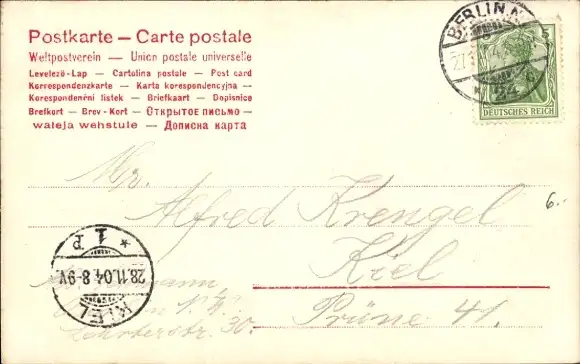 Postkarte – Carte postale
Weltpostverein – Union postale universelle
Levelező-Lap – Cartolina postale – Post card
Korrespondenzkarte – Karta korespondencyjna –
Korespondenční listek – Briefkaart – Dopisnice
Brefkort – Brev-Kort – Открытое письмо –
wałeja wehstule – Дописна карта
BERLIN. N.
5 5
DEUTSCHES REICH
Mr.
Alfred Krengel
6.-
Kiel
Prüne 41.
30.
* 1 P
28.11.04 8-9V.
KIEL